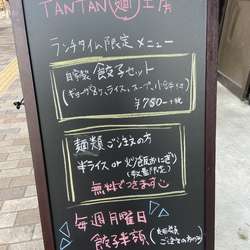 TANTAN 麺 工房
ランチタイム限定メニュー
自家製 餃子セット
(ギョーザ8ヶ,ライス,スープ,小鉢付)
¥780+税
麺類ご注文の方
半ライス or 炒飯おにぎり
(数量限定)
無料でつきます
毎週月曜日
餃子半額
ご注文の方のみ